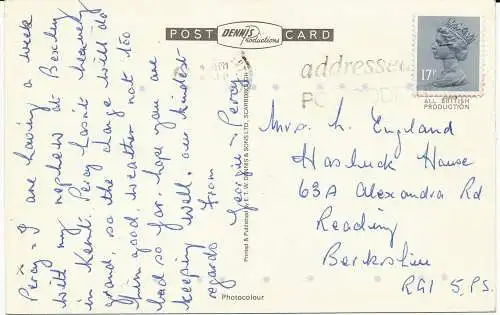 POST DENNIS Productions CARD
addressed
PO
17P
ALL BRITISH
PRODUCTION
Percy & I are having a week
with my nephew at Bexley
in Kent. Percy hasn't been very
grand, so the change will do
him good weather not too
bad so far, hope you are
keeping well, our kindest
regards from
Georgie & Percy
Printed & Published by E.T.W. DENNIS & SONS LTD., SCARBOROUGH
Photocolour
Mrs. L. England
Hasluck House
63A Alexandra Rd
Reading
Berkshire
RG1 5.PS.